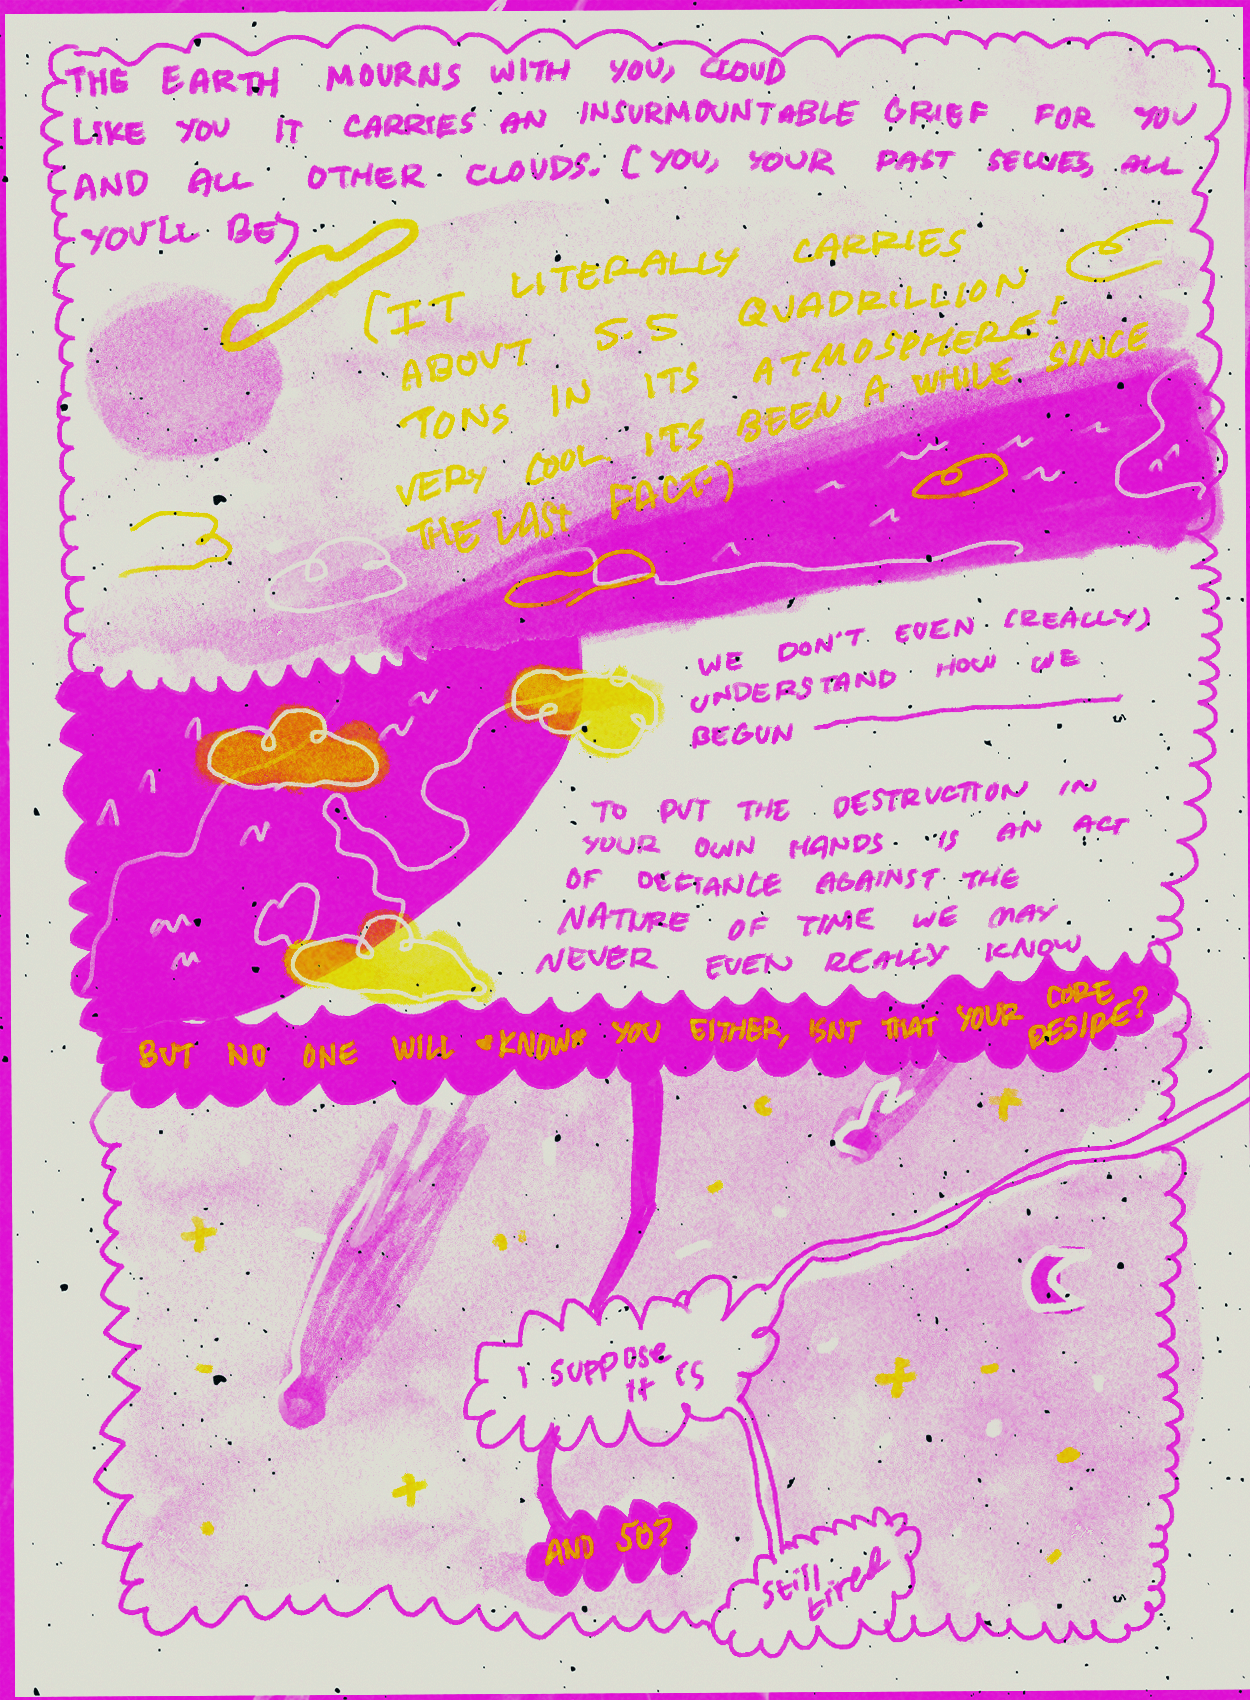 THE EARTH MOURNS WITH YOU, CLOUD
LIKE YOU IT CARRIES AN INSURMOUNTABLE GRIEF FOR YOU
AND ALL OTHER CLOUDS. (YOU, YOUR PAST SELVES, ALL
YOU'LL BE)
(IT LITERALLY CARRIES
ABOUT 5.5 QUADRILLION
TONS IN ITS ATMOSPHERE!
VERY COOL. ITS BEEN A WHILE SINCE
THE LAST FACT.)
WE DON'T EVEN (REALLY)
UNDERSTAND HOW WE
BEGUN
TO PUT THE DESTRUCTION IN
YOUR OWN HANDS IS AN ACT
OF DEFIANCE AGAINST THE
NATURE OF TIME WE MAY
NEVER EVEN REALLY KNOW
BUT NO ONE WILL *KNOW* YOU EITHER, ISNT THAT YOUR CORE
DESIRE?
I SUPPOSE
IT IS
AND SO?
STILL
TIRED